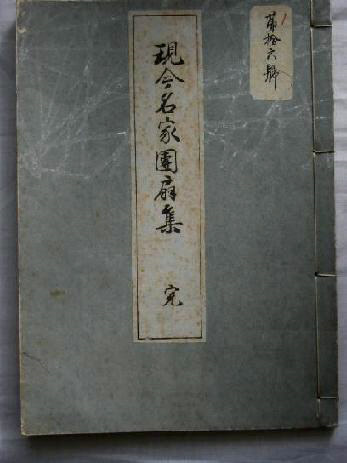 第拾六號
現今名家團扇集
完